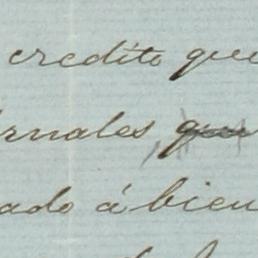 credito que
rnales que
ado á bien